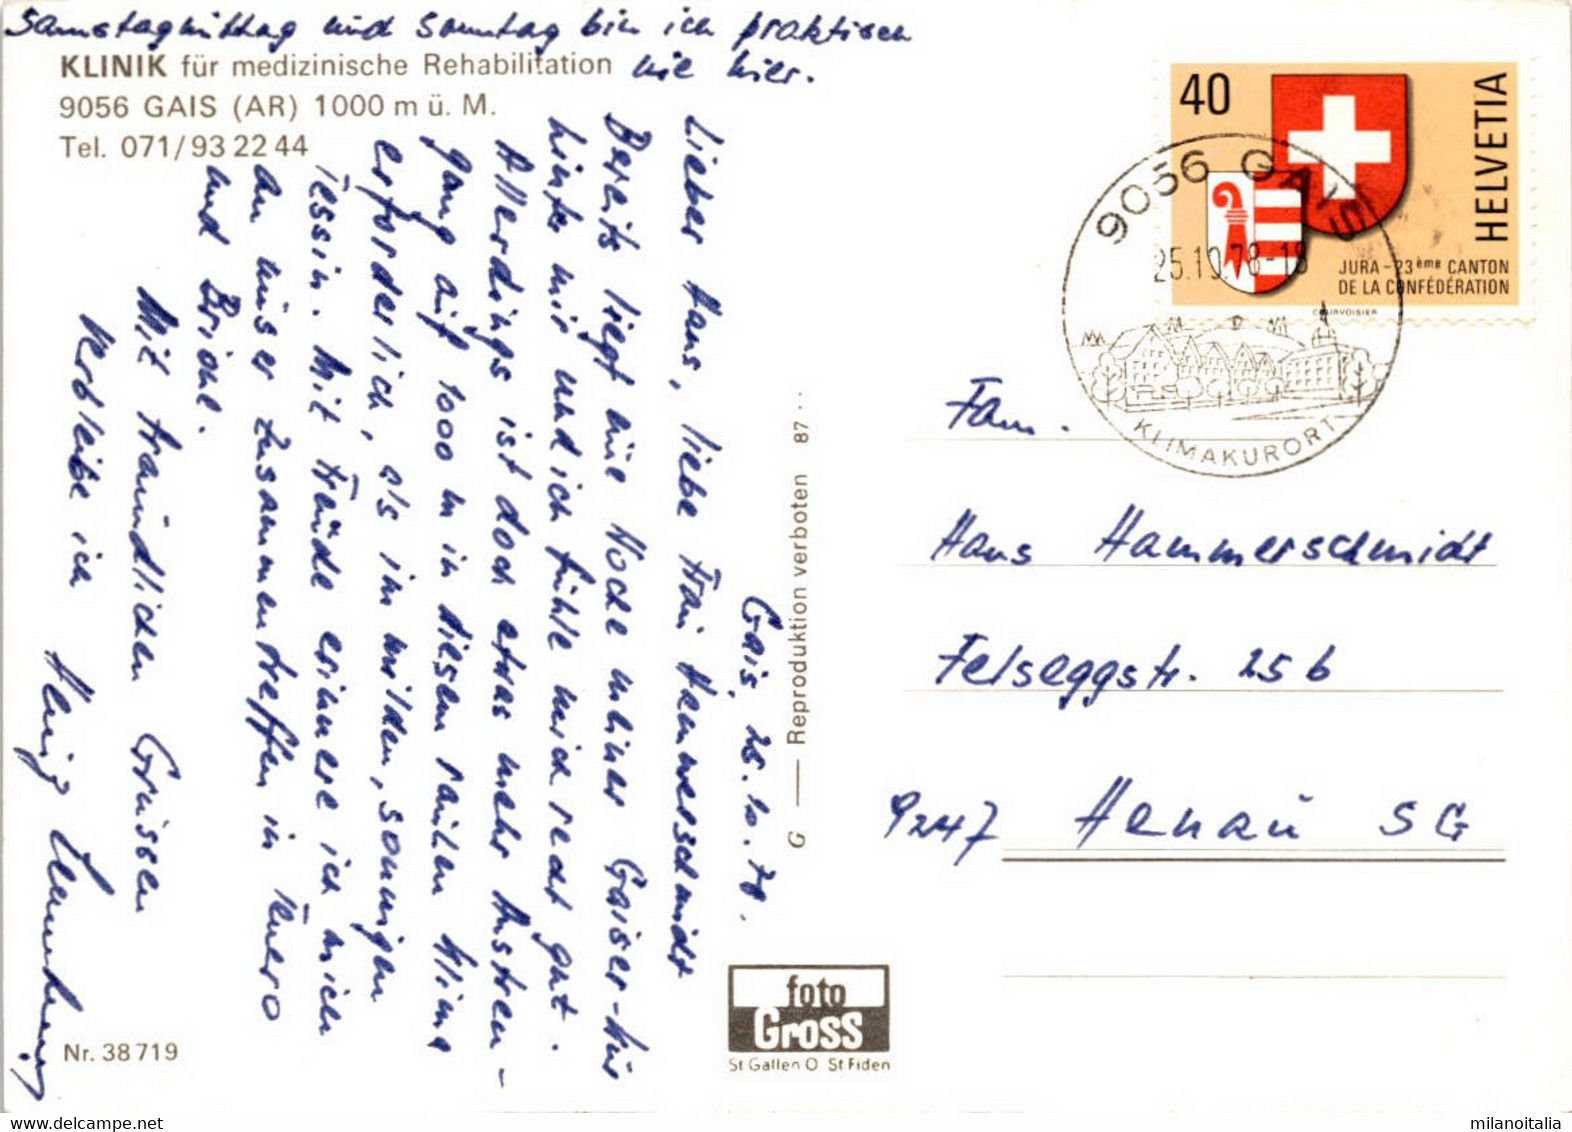 Samstagmittag und Sonntag bin ich praktisch
nie hier.
KLINIK für medizinische Rehabilitation
9056 GAIS (AR) 1000 m ü. M.
Tel. 071/93 22 44
Gais, 25.10.78.
Lieber Hans, liebe Frau Hammerschmidt
Bereits liegt eine Woche meiner Gaiser-Kur
hinter mir und ich fühle mich recht gut.
Allerdings ist doch etwas mehr Anstren-
gung auf 1000 m in diesem rauhen Klima
erforderlich, als im milden, sonnigen
Tessin. Mit Freude erinnere ich mich
an unser Zusammentreffen in Tenero
und Brione.
Mit freundlichen Grüssen
verbleibe ich
Nr. 38719
G — Reproduktion verboten 87 ..
foto
Gross
St Gallen O St Fiden
40
HELVETIA
JURA - 23ème CANTON
DE LA CONFÉDÉRATION
COURVOISIER
9056 GAIS
25.10.78-18
KLIMAKURORT
Fam.
Hans Hammerschmidt
Felseggstr. 25b
9247 Henau SG